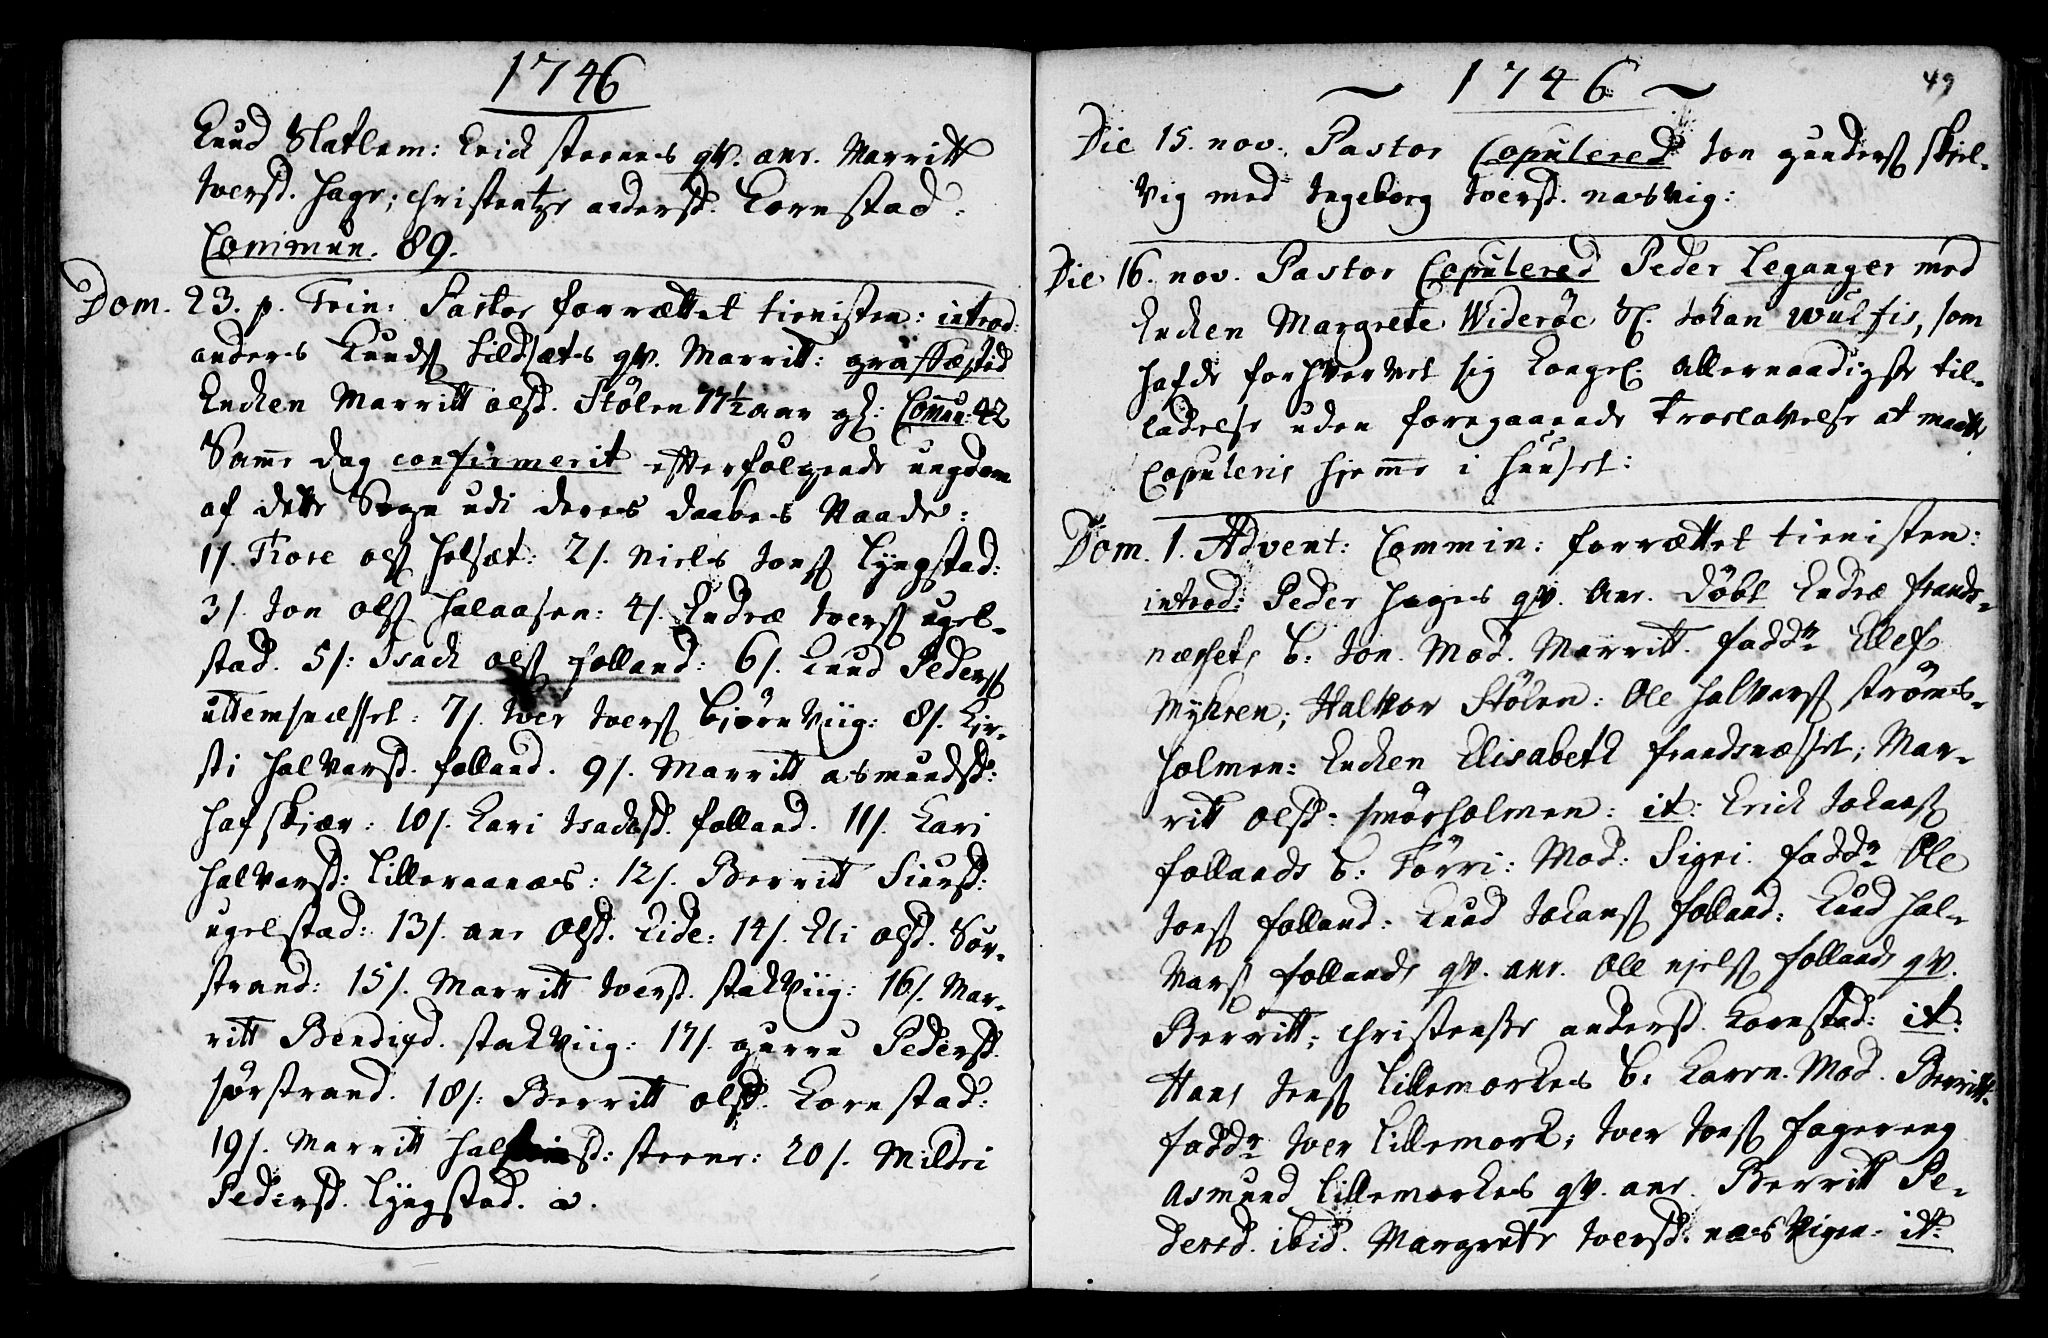 1746
Knud Slatlem: Erich steenes qv. ane. Marritt
Iversd. hage; christentze andersd: Kornstad:
Commun. 89.
Dom. 23. p. Trin: Pastor forrættet tienisten: introd:
anders Knuds Sildsæts qv. Marritt: græsfæsted
Enchen Marritt olsd. Stölen 77½ aar gl: Commun: 42
Samme dag confirmerit efterfölgende ungdom
af dette Sogn udi deres daabes Naade:
1/. Tore ols holsæt: 2/. Niels Jons Lÿngstad:
3/. Jon ols halaasen: 4/. Endræ Ivers ugel-
stad. 5/: Isach ols folland: 6/. Knud Peders
uttemsnæsset: 7/. Iver Ivers biörnViig: 8/. Kir-
sti halVarsd. folland. 9/. Marritt asmundsd:
hafskiær: 10/. Kari Isachsd. folland. 11/. Kari
halvarsd: Lilleraanæs: 12/. Berritt Siursd:
ugelstad: 13/. ane Olsd. Eide: 14/. Eli olsd. Sör-
strand: 15/. Marritt Iversd. stakViig: 16/. Mar-
ritt Bendixd. stakViig: 17/. gurru Pedersd.
sörstrand. 18/: Berritt olsd. Kornstad:
19/. Marritt halsteinsd: steene: 20/. Mildri
Pedersd. Lÿngstad. a.
~ 1746 ~
49
Die 15. nov. Pastor Copulered Jon gunders skiel-
vig med Ingeborg Iversd. næsvig:
Die 16. nov. Pastor Copulered Peder Leganger med
Enchen Margrete Wideröe Sl. Johan Wulfis, som
hafde forhvervet sig Kongel. Allernaadigste til-
ladelse uden foregaaende Troelovelse at maatte
Copuleris hiemme i huuset:
Dom. 1. Advent: Commin: forrættet tienisten:
introd: Peder hages qv. Ane. döbt Endræ frands-
næssets b: Jon. Mod. Marritt. fadder Ellef
Myhren; Halvor Stölen: Ole halvars ströms-
holmen: Enchen Elisabeth frandsnæsset; Mar-
ritt Olsd: smörholmen: it: Erich Johans
follands b: Törri: Mod: Sigri. fadder Ole
Jons folland: Knud Johans folland: Knud hal-
vars follands qv. ane. Ole njels follands qv.
Berritt; christense andersd. Kornstad: it:
Hans Jens Lillemorkes b: Karen. Mod. Berritt:
fadder Iver Lillemork; Iver Jons fagereng
Asmund Lillemorkes qv. ane. Berritt Pe-
dersd. ibid. Margrete Iversd: næsvigen. it: